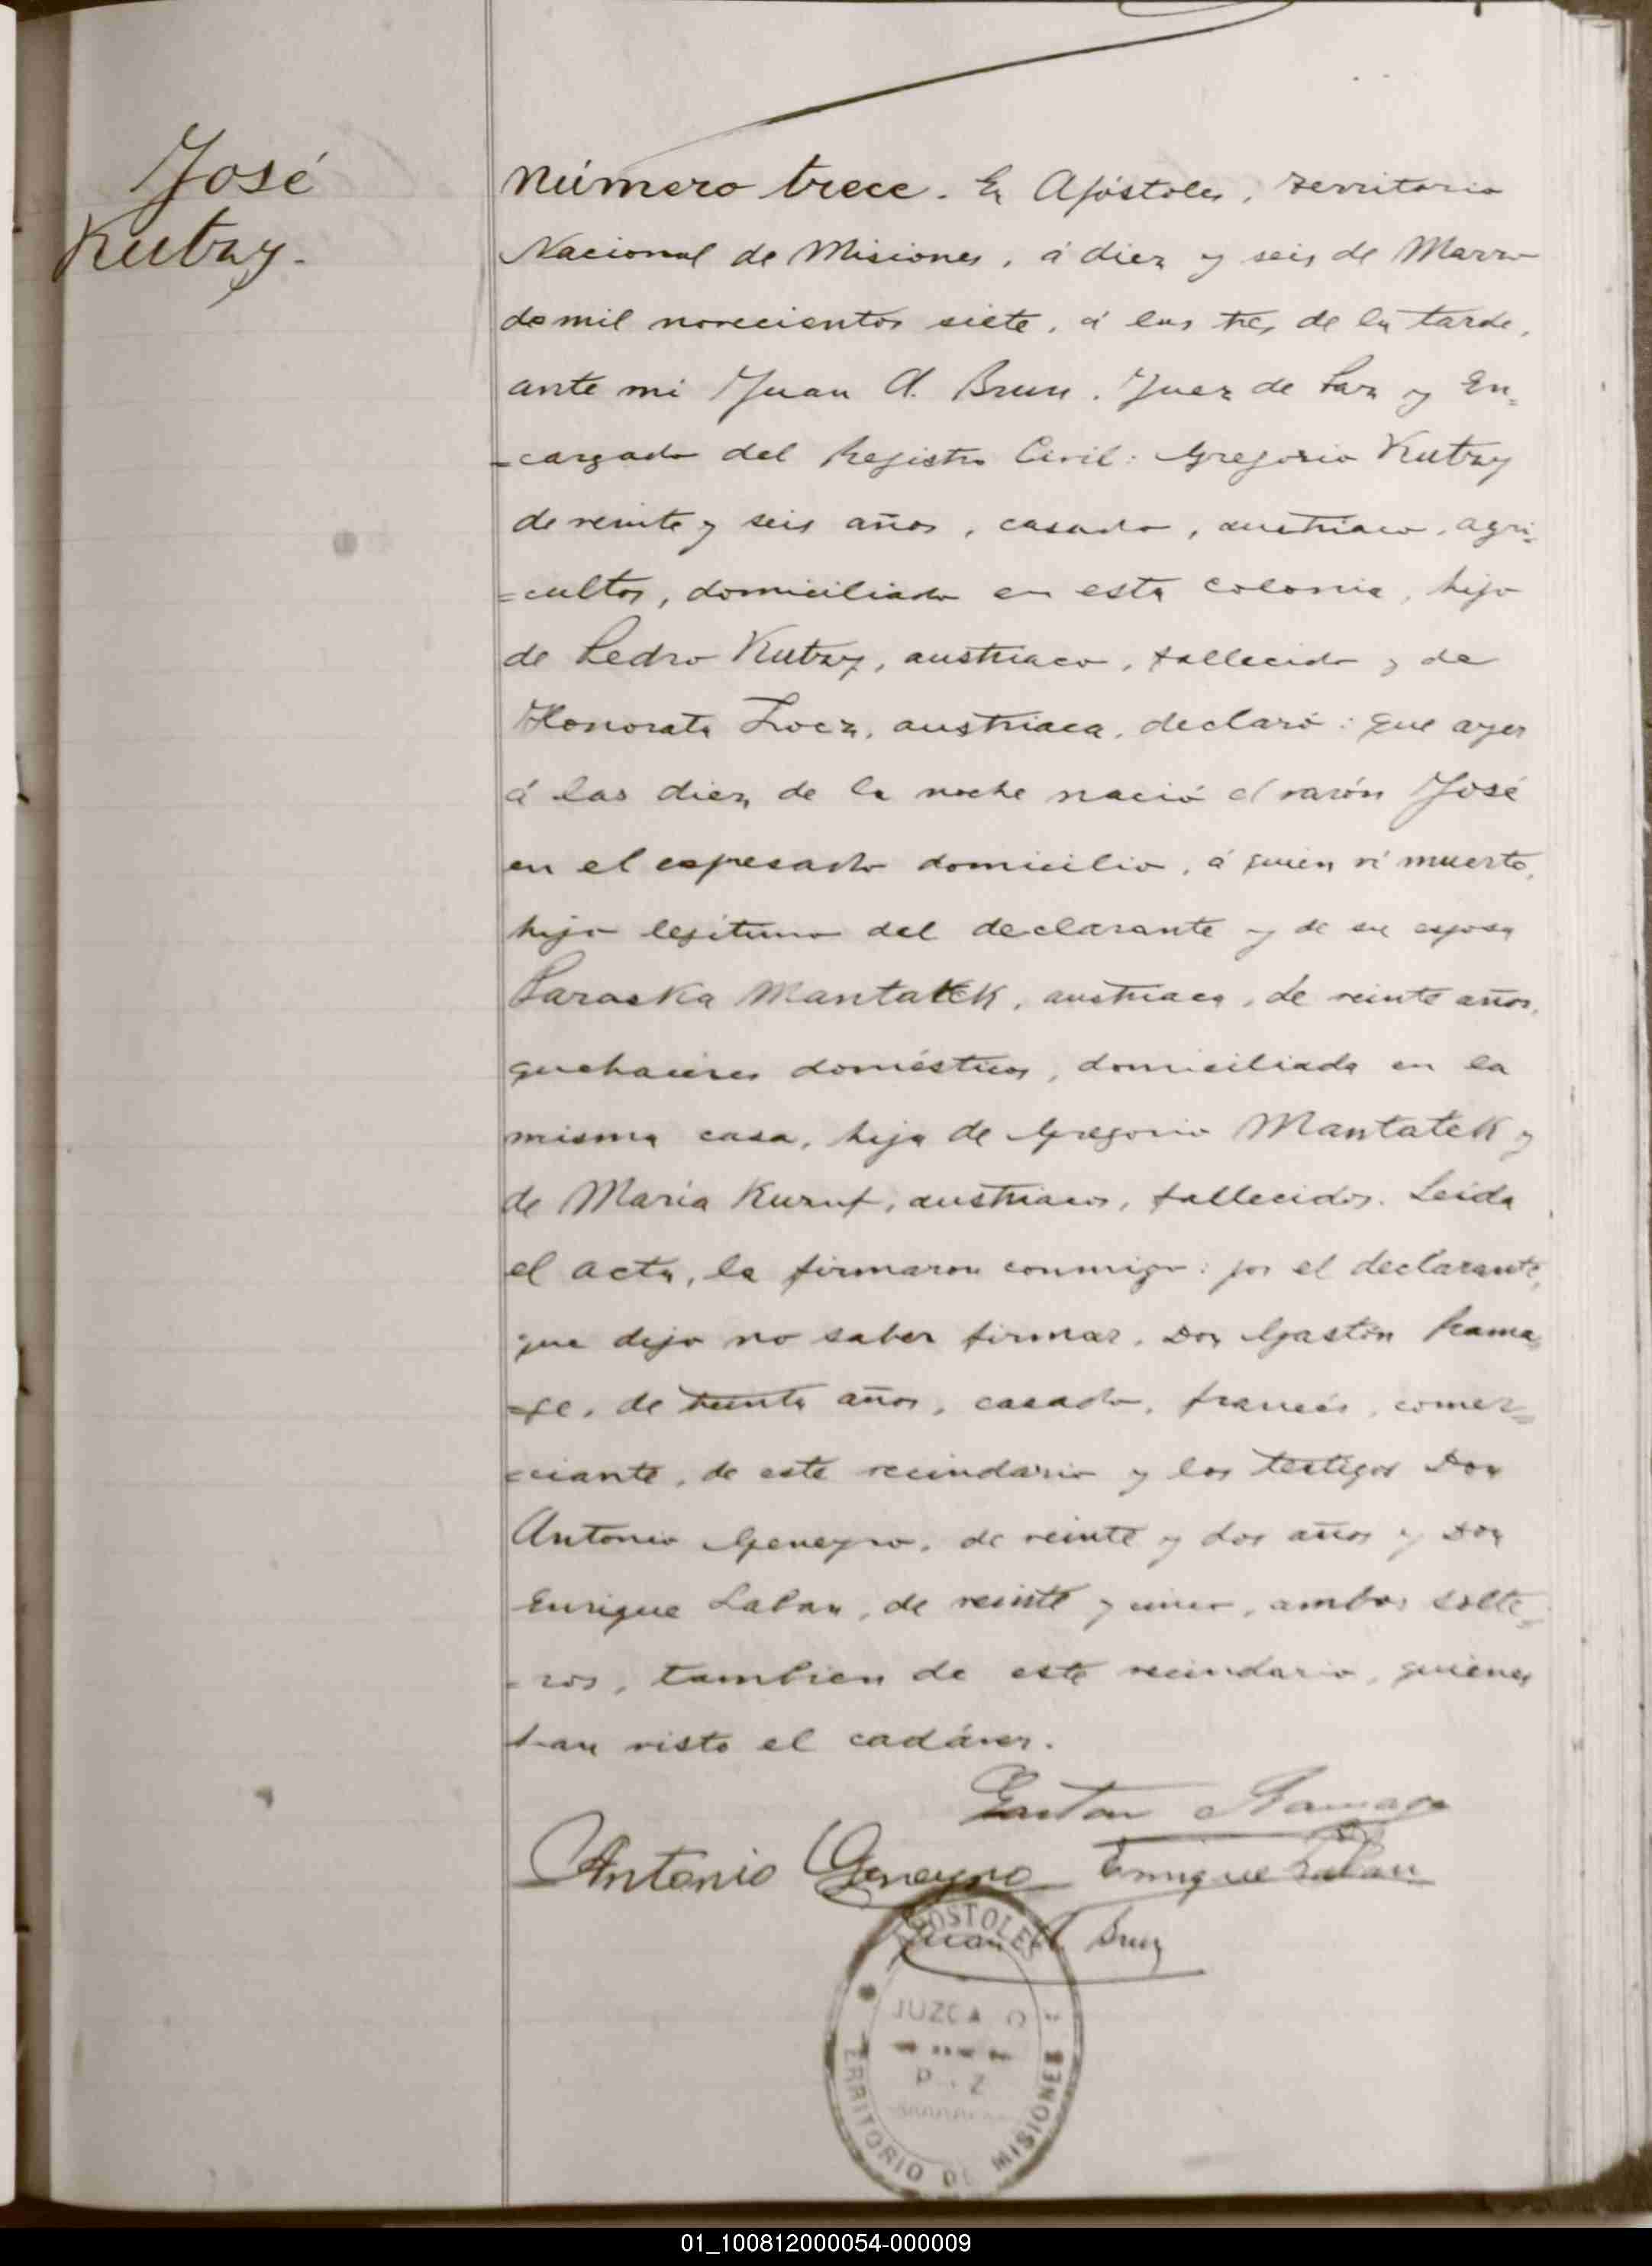 José
Kubzy.
Número trece. En Apóstoles, Territorio
Nacional de Misiones, á diez y seis de Marzo
de mil novecientos siete, á las tres de la tarde,
ante mi Juan A. Brun, Juez de Paz y En=
=cargado del Registro Civil: Gregorio Kubzy
de veinte y seis años, casado, austriaco, agri=
=cultor, domiciliado en esta colonia, hijo
de Pedro Kubzy, austriaco, fallecido y de
Honorata austriaca, declaró: que ayer
á las diez de la noche nació el varón José
en el espresado domicilio, á quien ví muerto,
hijo legitimo del declarante y de su esposa
Paraska Mantatek, austriaca, de veinte años,
quehaceres domésticos, domiciliada en la
misma casa, hija de Gregorio Mantatek y
de María austriacos, fallecidos. Leida
el acta, la firmaron conmigo: por el declarante,
que dijo no saber firmar, Don Gastón Rama=
=ge, de treinta años, casado, francés, comer=
=ciante, de este vecindario y los testigos Don
Antonio Geneyro, de veinte y dos años y Don
Enrique Laban, de veinte y uno, ambos solte=
=ros, tambien de este vecindario, quienes
han visto el cadáver.
Gaston Ramage
Antonio Geneyro Enrique Laban
Juan A. Brun
APOSTOLES
JUZGADO
PAZ
TERRITORIO DE MISIONES
01_100812000054-000009